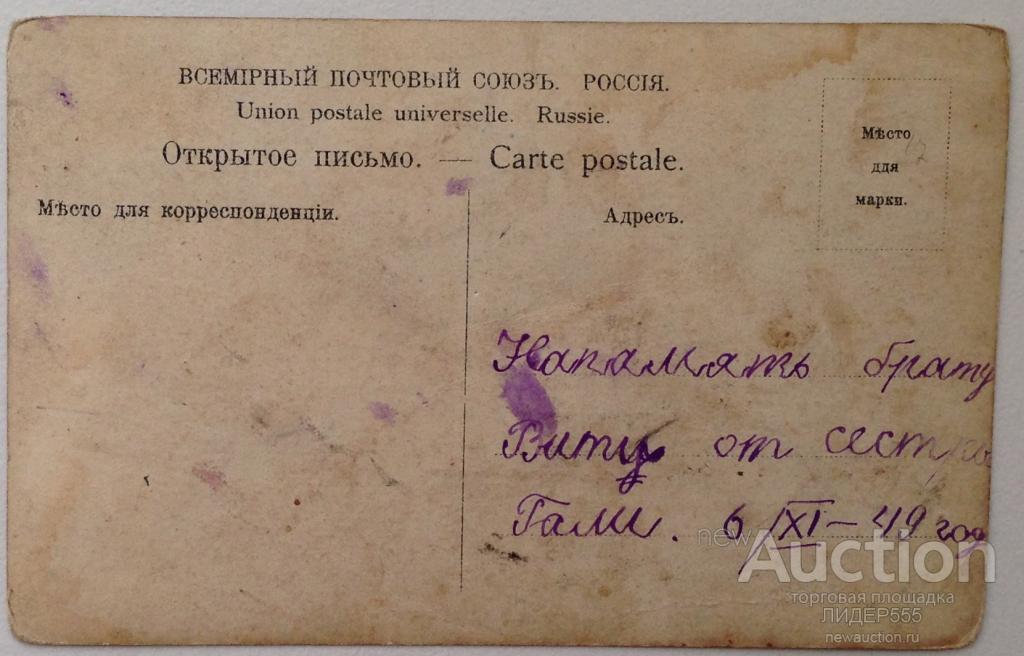 ВСЕМІРНЫЙ ПОЧТОВЫЙ СОЮЗЪ. РОССІЯ.
Union postale universelle. Russie.
Открытое письмо. — Carte postale.
Мѣсто
для
марки.
Мѣсто для корреспонденціи.
Адресъ.
Напамять брату
Виту от сестры
Гали. 6/XI-49 год
newAuction
торговая площадка
ЛИДЕР555
newauction.ru